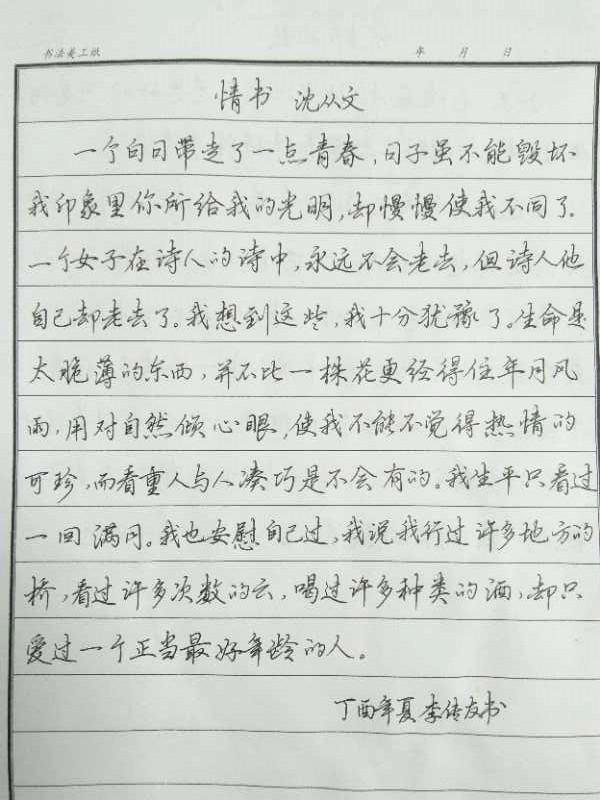 书法美工纸 年 月 日
情书 沈从文
一个白日带走了一点青春,日子虽不能毁坏
我印象里你所给我的光明,却慢慢使我不同了.
一个女子在诗人的诗中,永远不会老去,但诗人他
自己却老去了。我想到这些,我十分犹豫了。生命是
太脆薄的东西,并不比一株花更经得住年月风
雨,用对自然倾心眼,使我不能不觉得热情的
可珍,而看重人与人凑巧是不会有的。我生平只看过
一回满月。我也安慰自己过,我说我行过许多地方的
桥,看过许多次数的云,喝过许多种类的酒,却只
爱过一个正当最好年龄的人。
丁酉年夏 李传友书